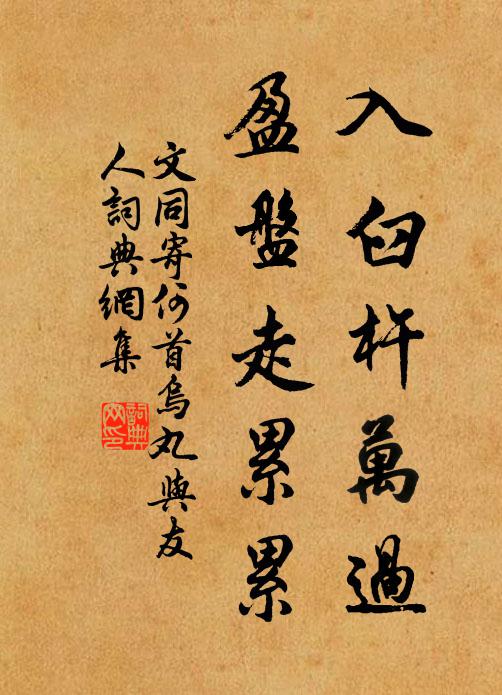 入臼杵萬過
盈盤走累累
文同寄何首烏丸與友
人詞典網集
詞典
网印